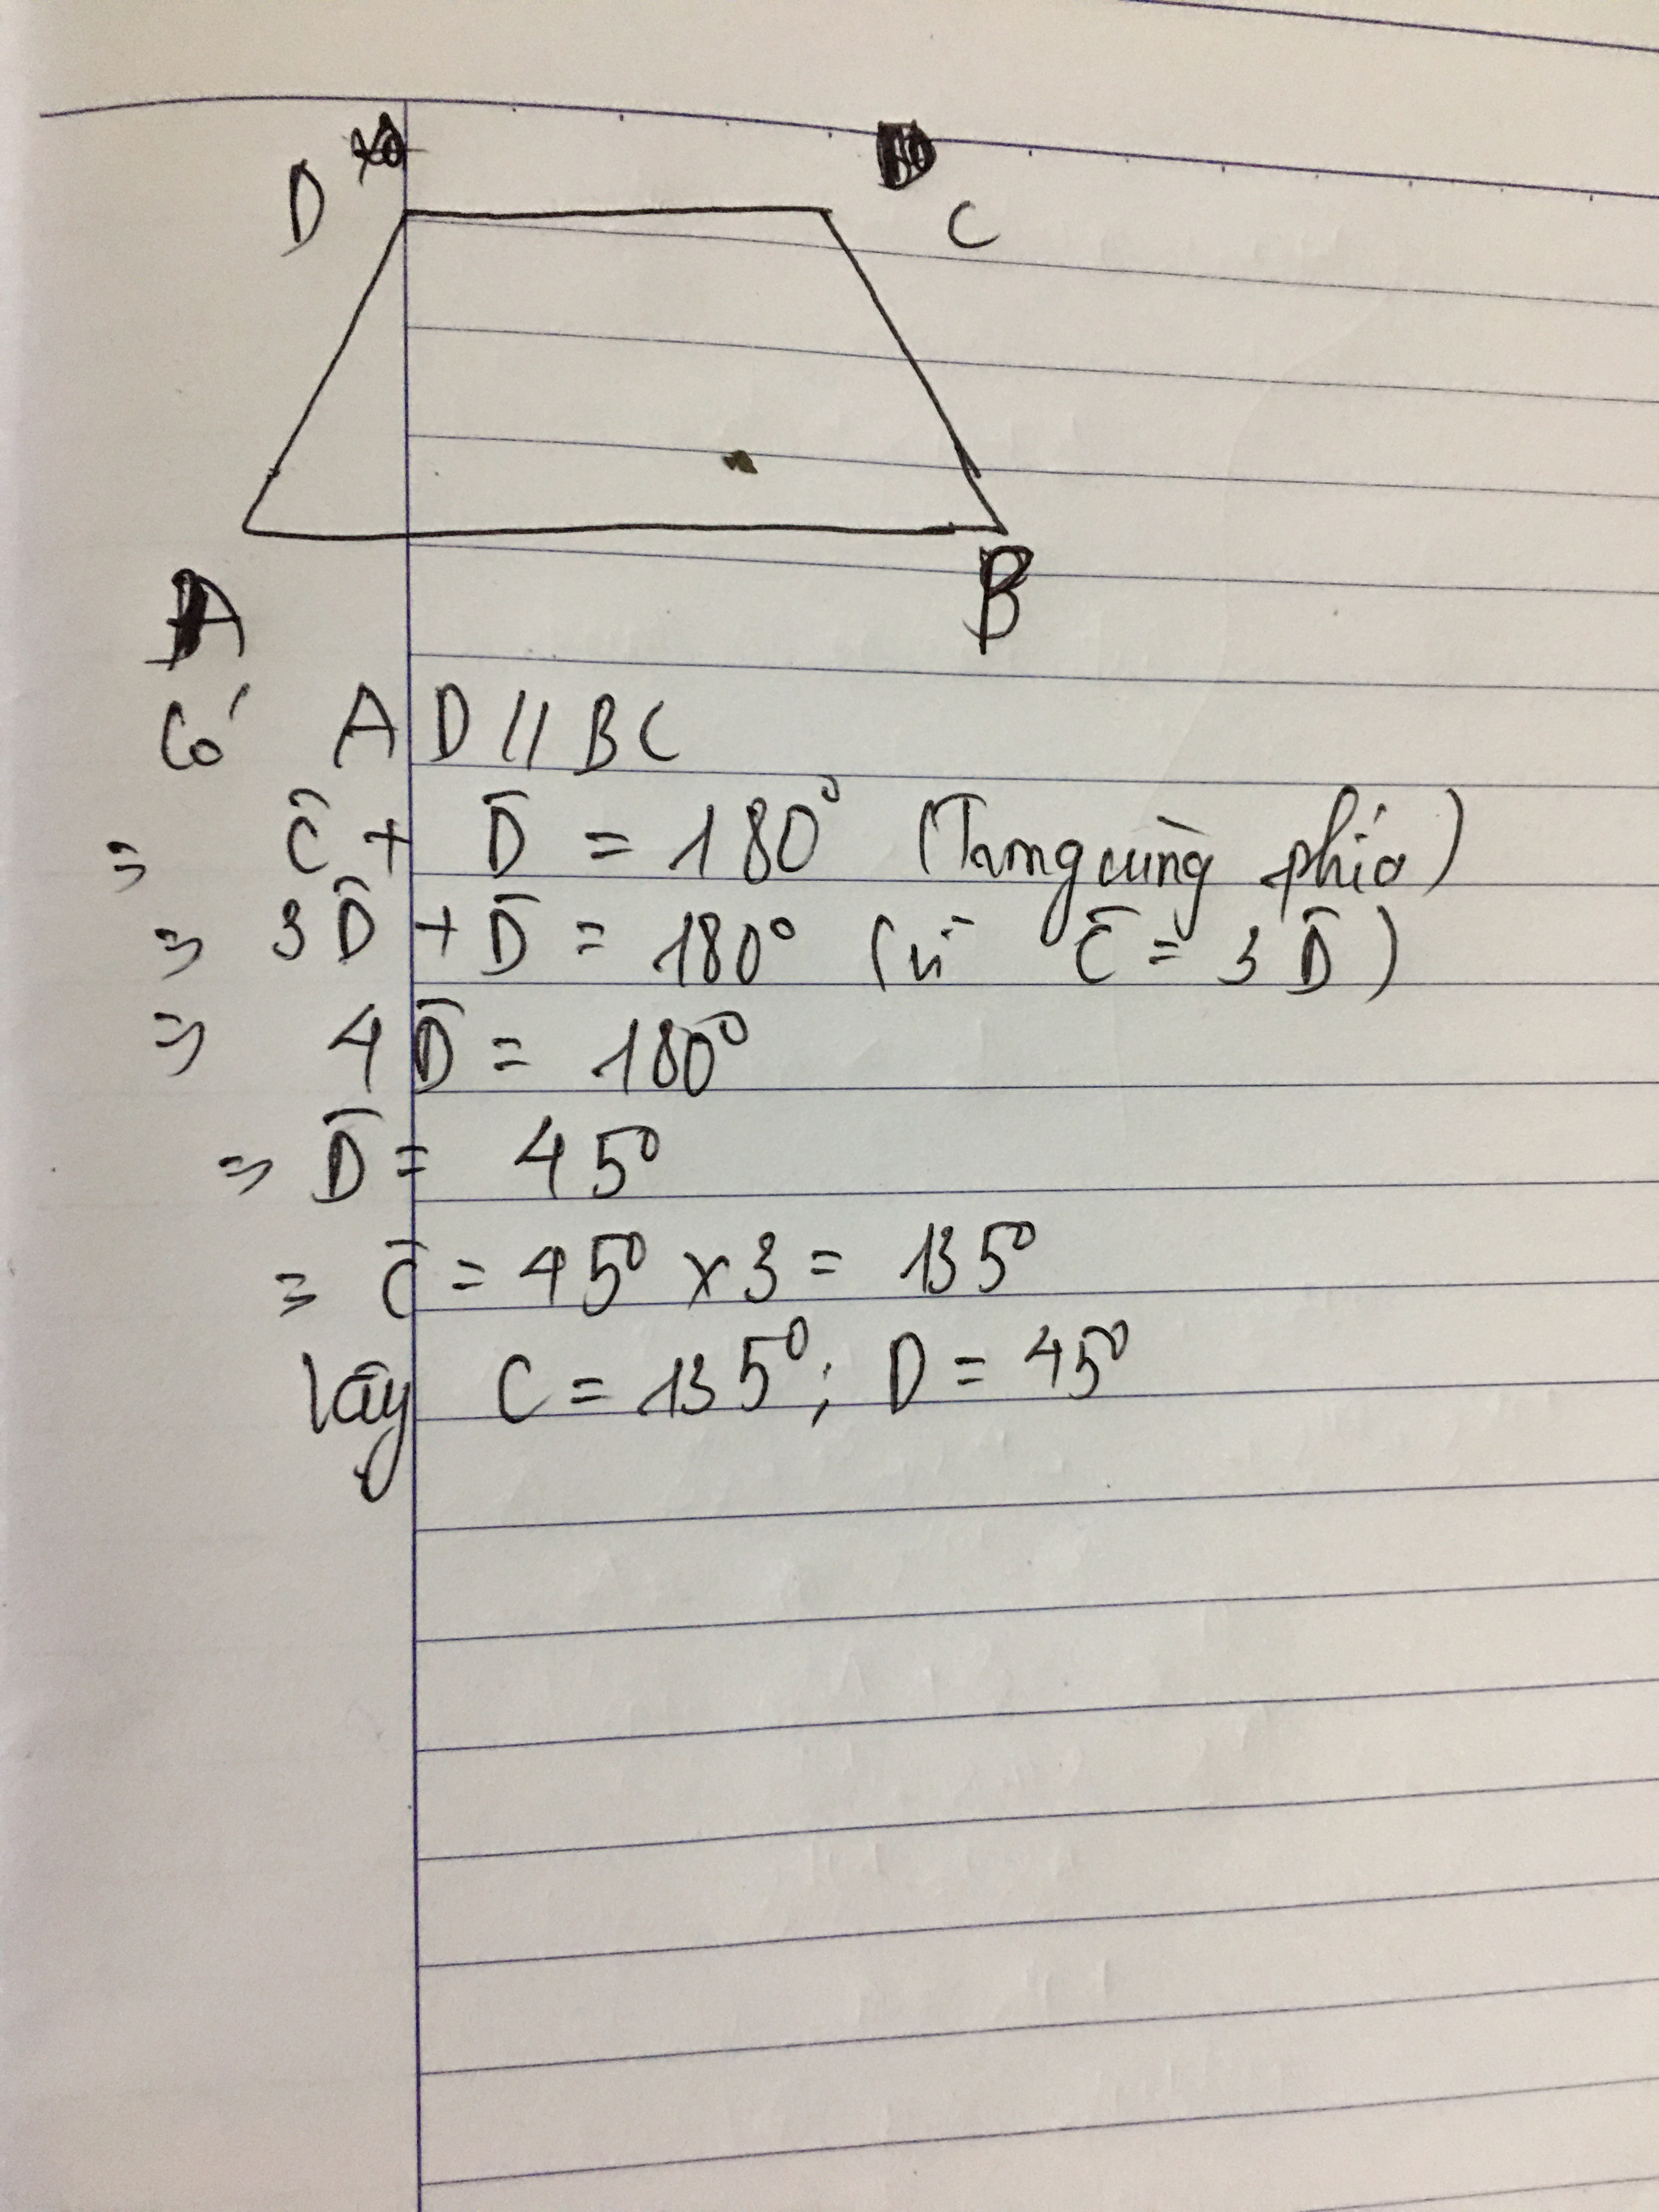 D C
A B
Có AD // BC
⇒ C̄ + D̄ = 180° (Trong cùng phía)
⇒ 3D̄ + D̄ = 180° (vì C̄ = 3D̄)
⇒ 4D̄ = 180°
⇒ D̄ = 45°
⇒ C̄ = 45° x 3 = 135°
Vậy C = 135°; D = 45°